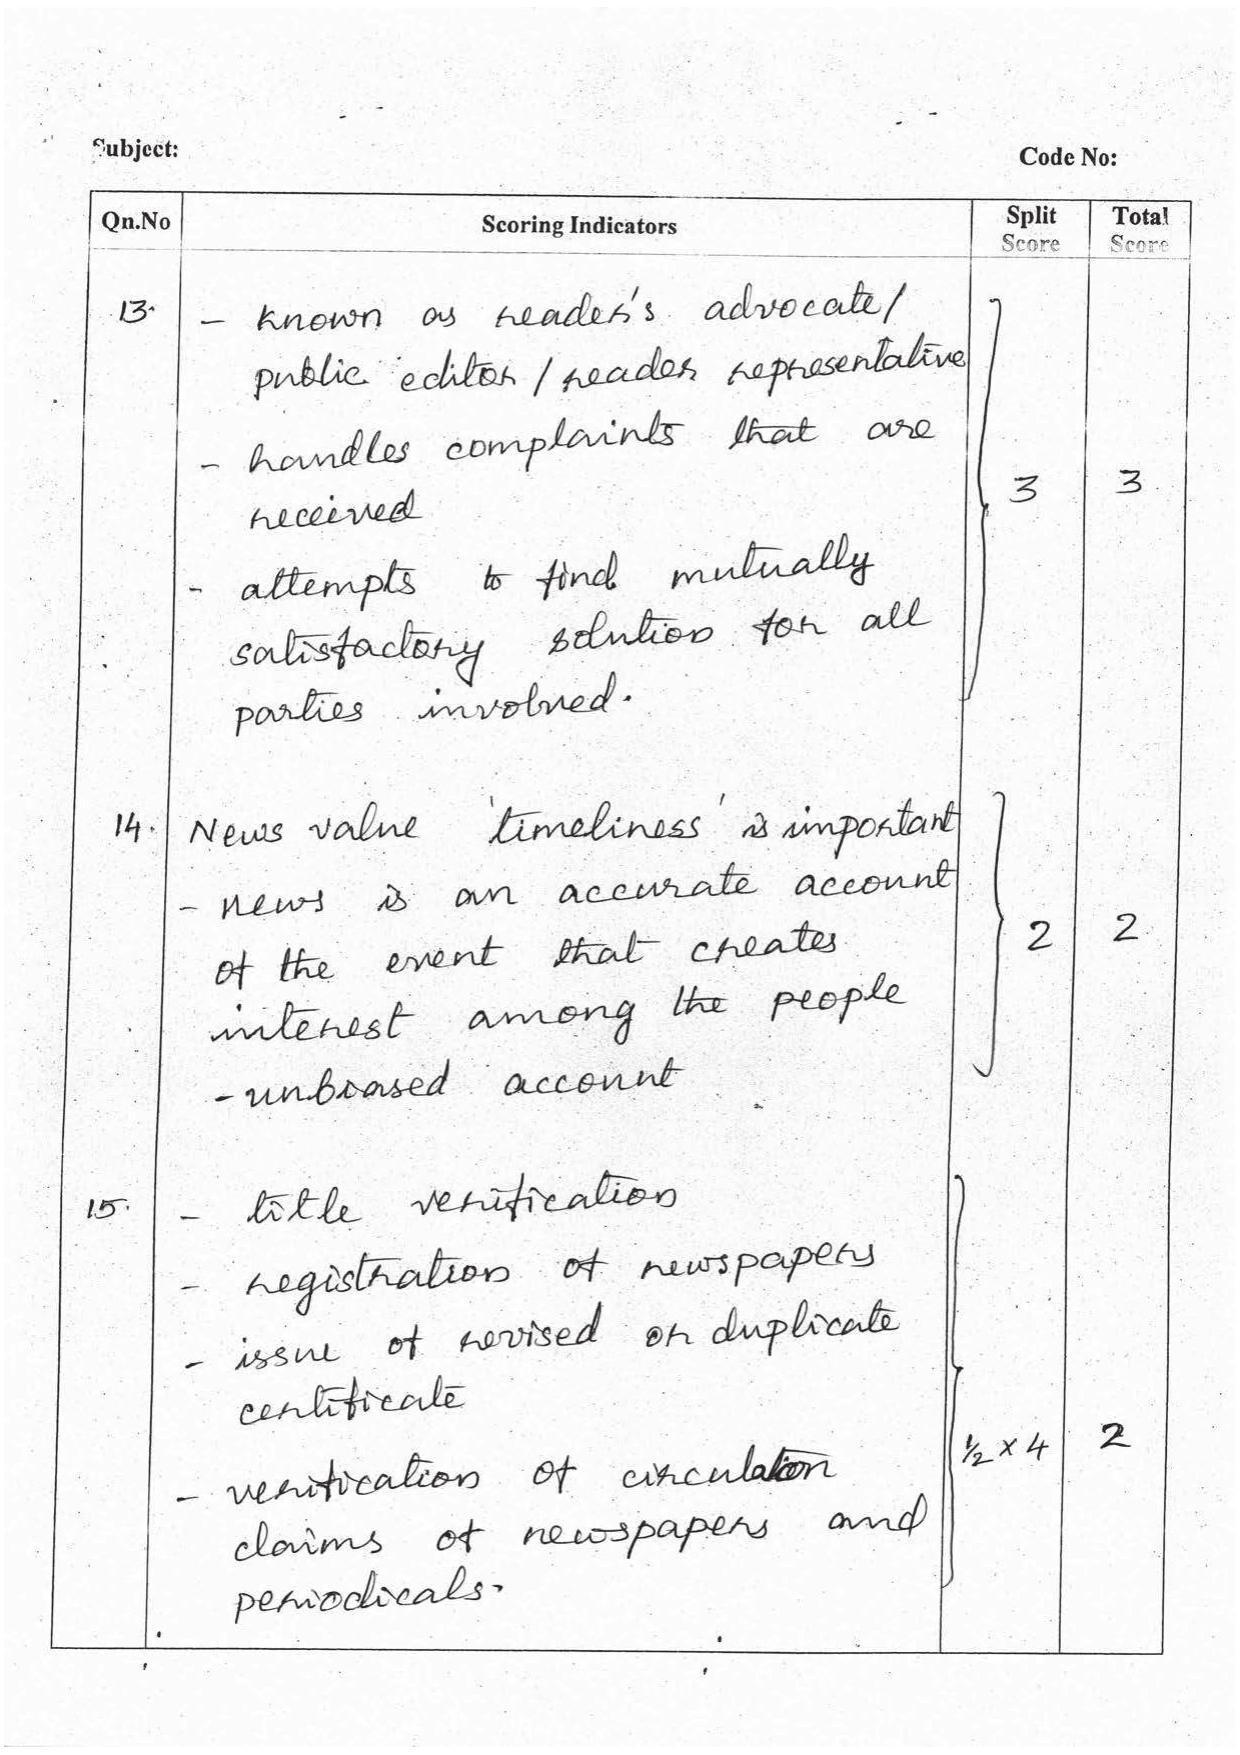 Subject:
Code No:
Qn.No Scoring Indicators Split Score Total Score
13. - known as reader's advocate/
public editor / reader representative
- handles complaints that are
received 3 3
- attempts to find mutually
satisfactory solution for all
parties involved.
14. News value 'timeliness' is important
- news is an accurate account
of the event that creates 2 2
interest among the people
- unbiased account
15. - title verification
- registration of newspapers
- issue of revised or duplicate
certificate
- verification of circulation ½ x 4 2
claims of newspapers and
periodicals.